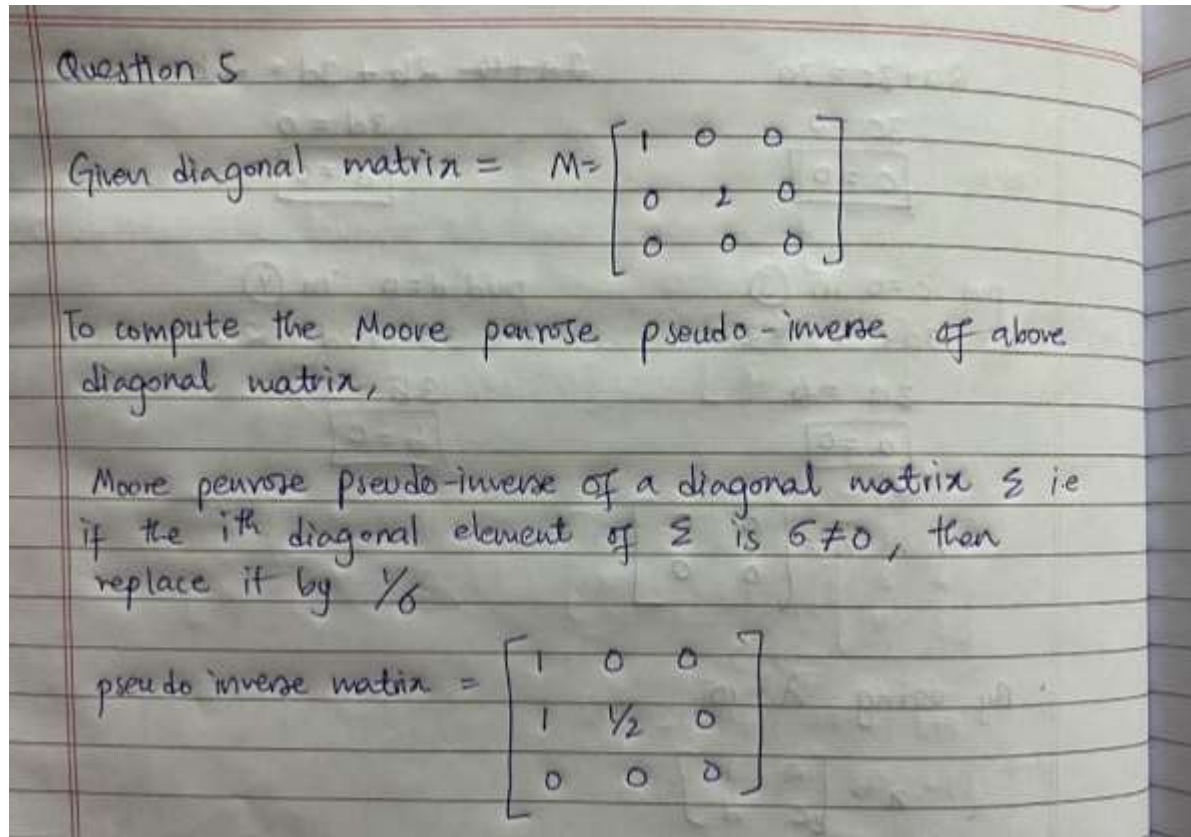 Question 5
Given diagonal matrix = M= [ 1 0 0
0 2 0
0 0 0 ]
To compute the Moore penrose pseudo-inverse of above
diagonal matrix,
Moore penrose Pseudo-inverse of a diagonal matrix Σ i.e
if the ith diagonal element of Σ is 6≠0, then
replace it by 1/6
pseudo inverse matrix = [ 1 0 0
1 1/2 0
0 0 0 ]